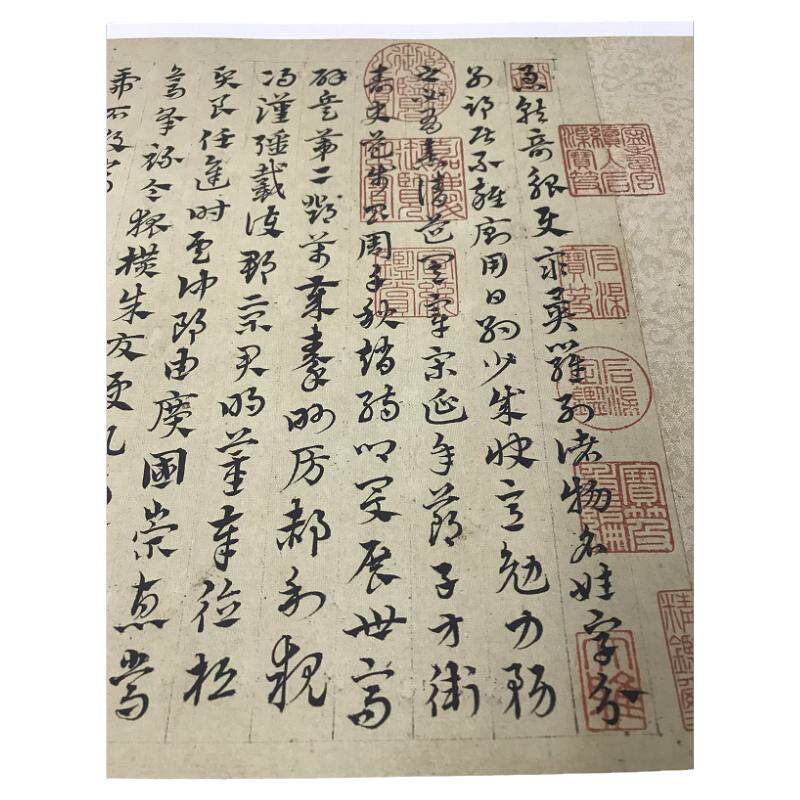 急就奇觚與衆異羅列諸物名姓字分
別部居不雜廁用日約少誠快意勉力務
之必有憙請道其章宋延年鄭子方衛
益壽史步昌周千秋趙孺卿爰展世高
辟兵第二鄧萬歲秦眇房郝利親
馮漢彊戴護郡景君明董奉德桓
賢良任逢時侯仲郎由廣國榮惠常
烏承祿令狐橫朱交便孔
石渠寶笈
石渠定鑑
寶笈重編